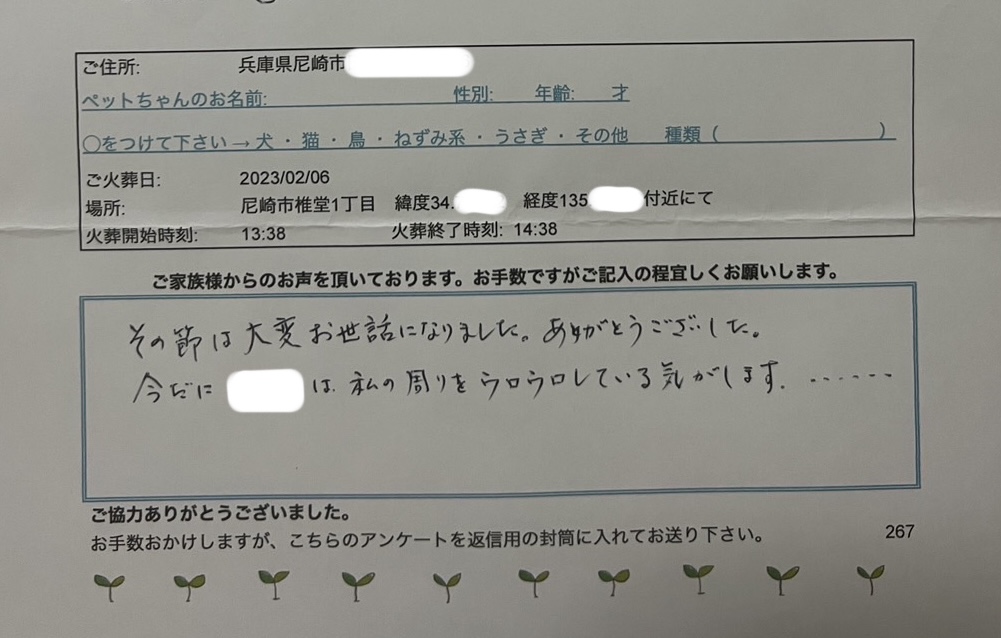 ご住所: 兵庫県尼崎市
ペットちゃんのお名前: 性別: 年齢: 才
○をつけて下さい→犬・猫・鳥・ねずみ系・うさぎ・その他 種類( )
ご火葬日: 2023/02/06
場所: 尼崎市椎堂1丁目 緯度34. 経度135 付近にて
火葬開始時刻: 13:38 火葬終了時刻: 14:38
ご家族様からのお声を頂いております。お手数ですがご記入の程宜しくお願いします。
その節は大変お世話になりました。ありがとうございました。
今だに は、私の周りをウロウロしている気がします.......
ご協力ありがとうございました。
お手数おかけしますが、こちらのアンケートを返信用の封筒に入れてお送り下さい。
267